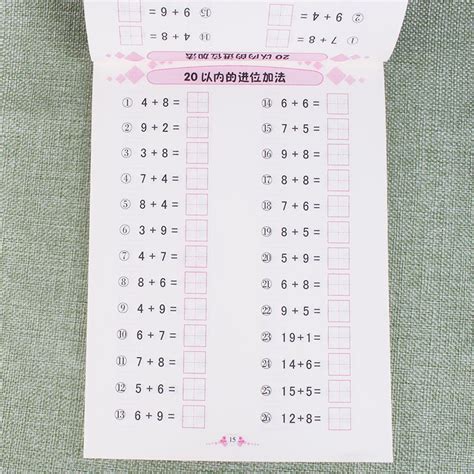 20 以内的进位加法
20 以内的进位加法
① 4 + 8 =
② 9 + 2 =
③ 3 + 8 =
④ 7 + 4 =
⑤ 8 + 4 =
⑥ 3 + 9 =
⑦ 4 + 7 =
⑧ 8 + 6 =
⑨ 4 + 9 =
⑩ 6 + 7 =
⑪ 7 + 8 =
⑫ 5 + 6 =
⑬ 6 + 9 =
⑭ 6 + 6 =
⑮ 7 + 5 =
⑯ 9 + 8 =
⑰ 8 + 8 =
⑱ 7 + 8 =
⑲ 8 + 5 =
⑳ 9 + 5 =
㉑ 7 + 7 =
㉒ 8 + 9 =
㉓ 19+1 =
㉔ 14+6 =
㉕ 15+5 =
㉖ 12+8 =
15